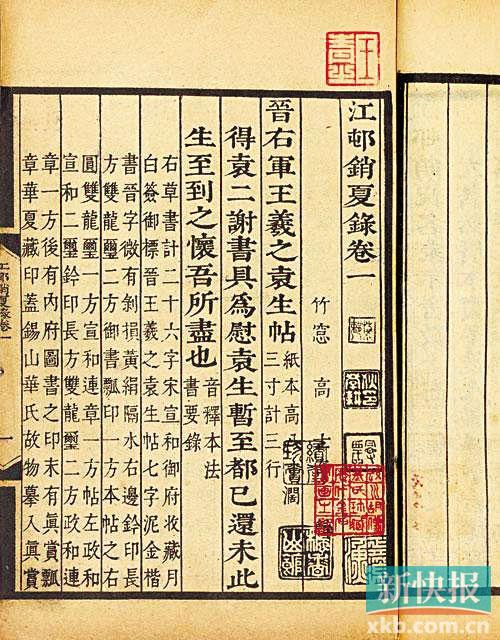 江邨銷夏錄卷一
竹窻 高
晉右軍王羲之袁生帖 紙本高
三寸計三行
得袁二謝書具為慰袁生暫至都已還未此
生至到之懷吾所盡也 音釋本法
書要錄
右草書計二十六字宋宣和御府收藏月
白簽御標晉王羲之袁生帖七字泥金楷
書晉字微有剝損黃絹隔水右邊鈐印長
方雙龍璽二方御書瓢印一方本帖右之
圓雙龍璽一方宣和連章一方帖左政和
宣和二璽鈐印長方雙龍璽二方政和連
章一方後有內府圖書之印末有眞賞瓢
章華夏藏印蓋錫山華氏故物摹入眞賞
江邨銷夏錄卷一
一
新快报
xkb.com.cn